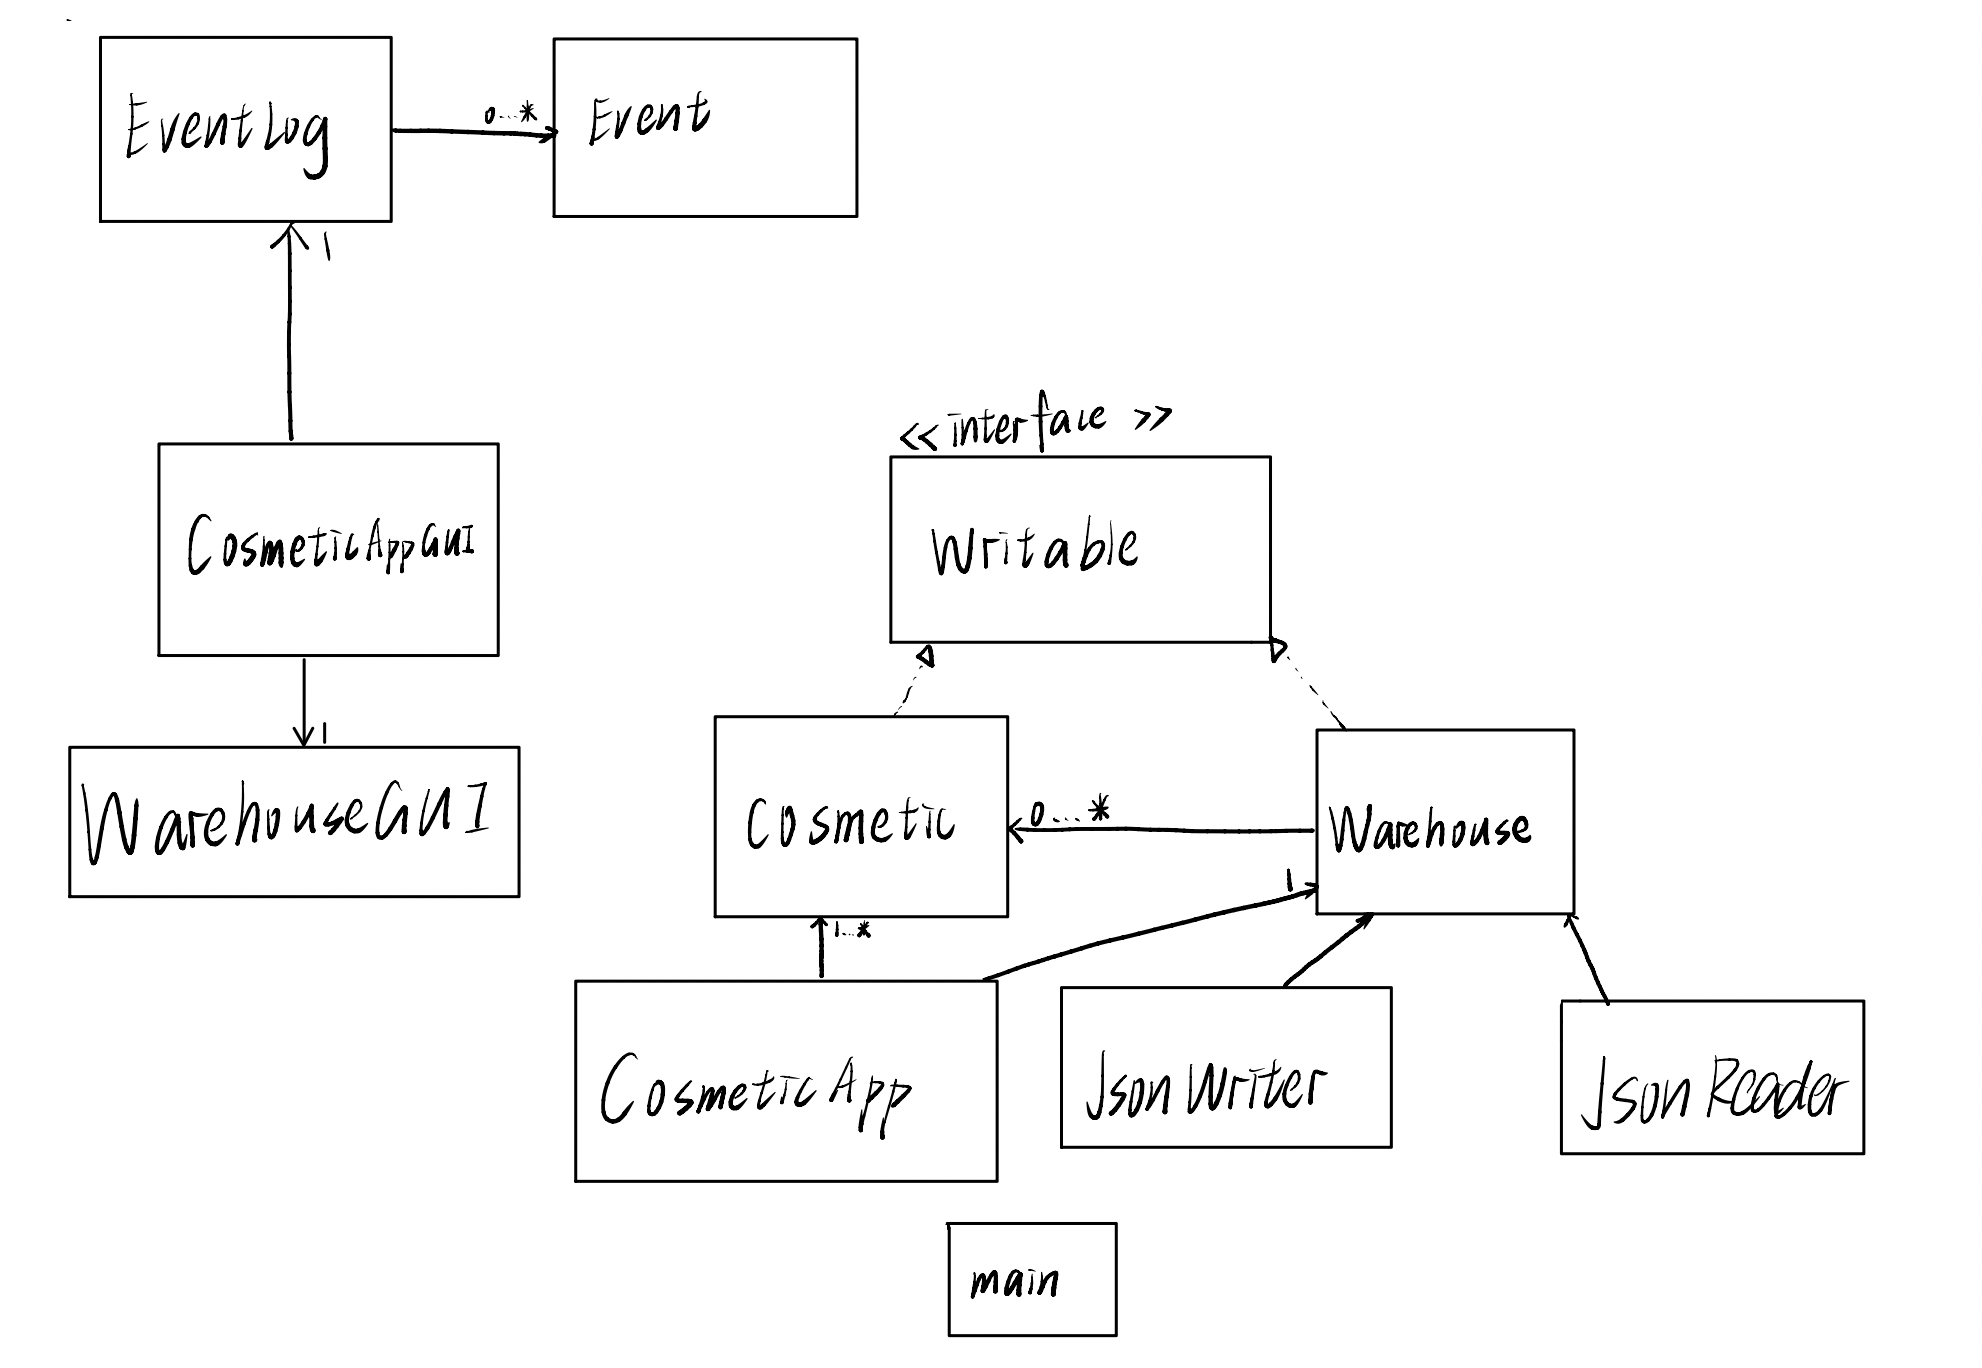 EventLog
0...*
Event
1
CosmeticAppGUI
1
WarehouseGUI
<< interface >>
Writable
Cosmetic
0...*
Warehouse
1
1...*
CosmeticApp
JsonWriter
JsonReader
main